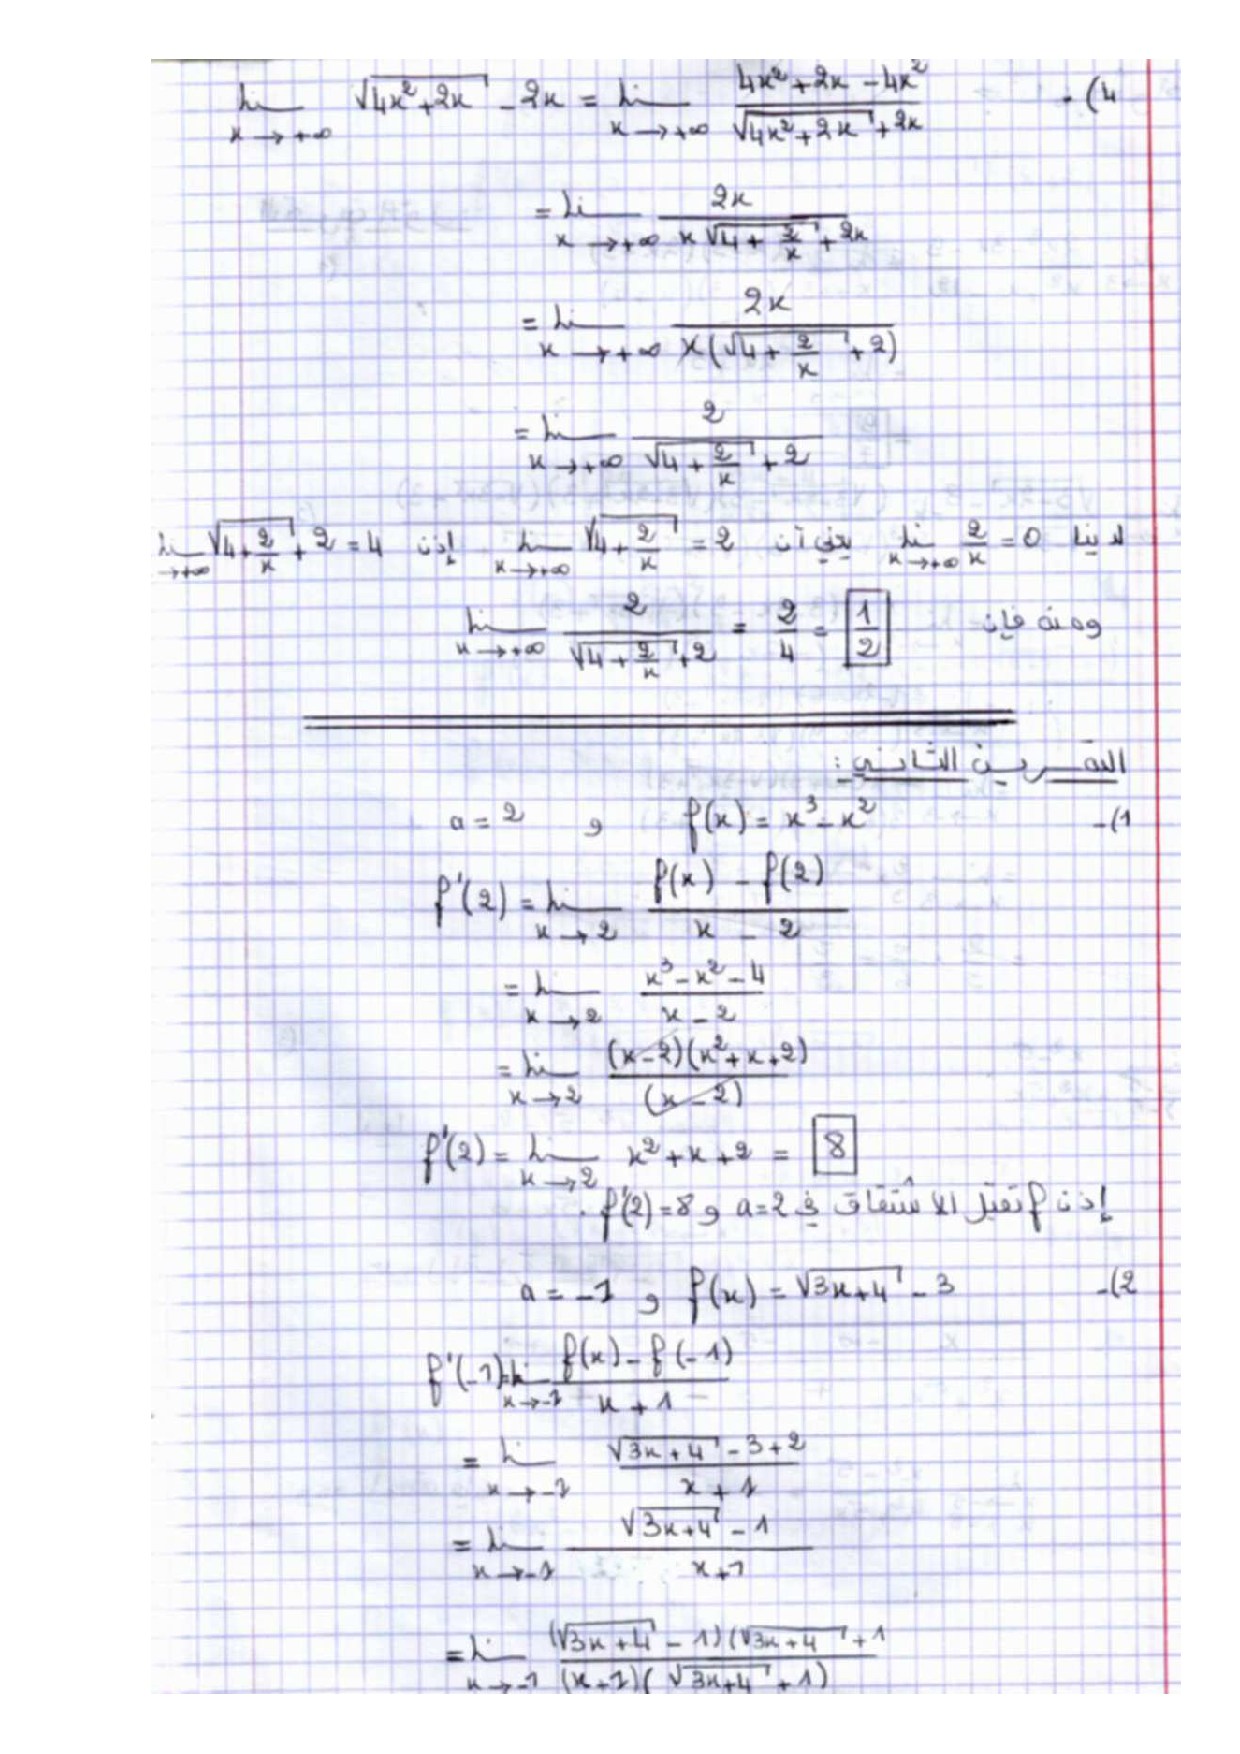 4)- lim x→+∞ √(4x²+2x) - 2x = lim x→+∞ (4x²+2x-4x²)/(√(4x²+2x)+2x)
= lim x→+∞ 2x/(x√(4+2/x)+2x)
= lim x→+∞ 2x/(x(√(4+2/x)+2))
= lim x→+∞ 2/(√(4+2/x)+2)
لدينا lim x→+∞ 2/x = 0 يعني أن lim x→+∞ √(4+2/x) = 2 إذن lim →+∞ √(4+2/x)+2 = 4
ومنه فإن lim x→+∞ 2/(√(4+2/x)+2) = 2/4 = 1/2
التمرين الثاني :
1)- f(x) = x³-x² و a = 2
f'(2) = lim x→2 (f(x) - f(2))/(x - 2)
= lim x→2 (x³-x²-4)/(x-2)
= lim x→2 (x-2)(x²+x+2)/(x-2)
f'(2) = lim x→2 x²+x+2 = 8
إذن f تقبل الاشتقاق في a=2 و f'(2)=8 .
2)- f(x) = √(3x+4) - 3 و a = -1
f'(-1) = lim x→-1 (f(x) - f(-1))/(x+1)
= lim x→-1 (√(3x+4) - 3+2)/(x+1)
= lim x→-1 (√(3x+4) - 1)/(x+1)
= lim x→-1 (√(3x+4) - 1)(√(3x+4) + 1/(x+1)(√(3x+4) + 1)